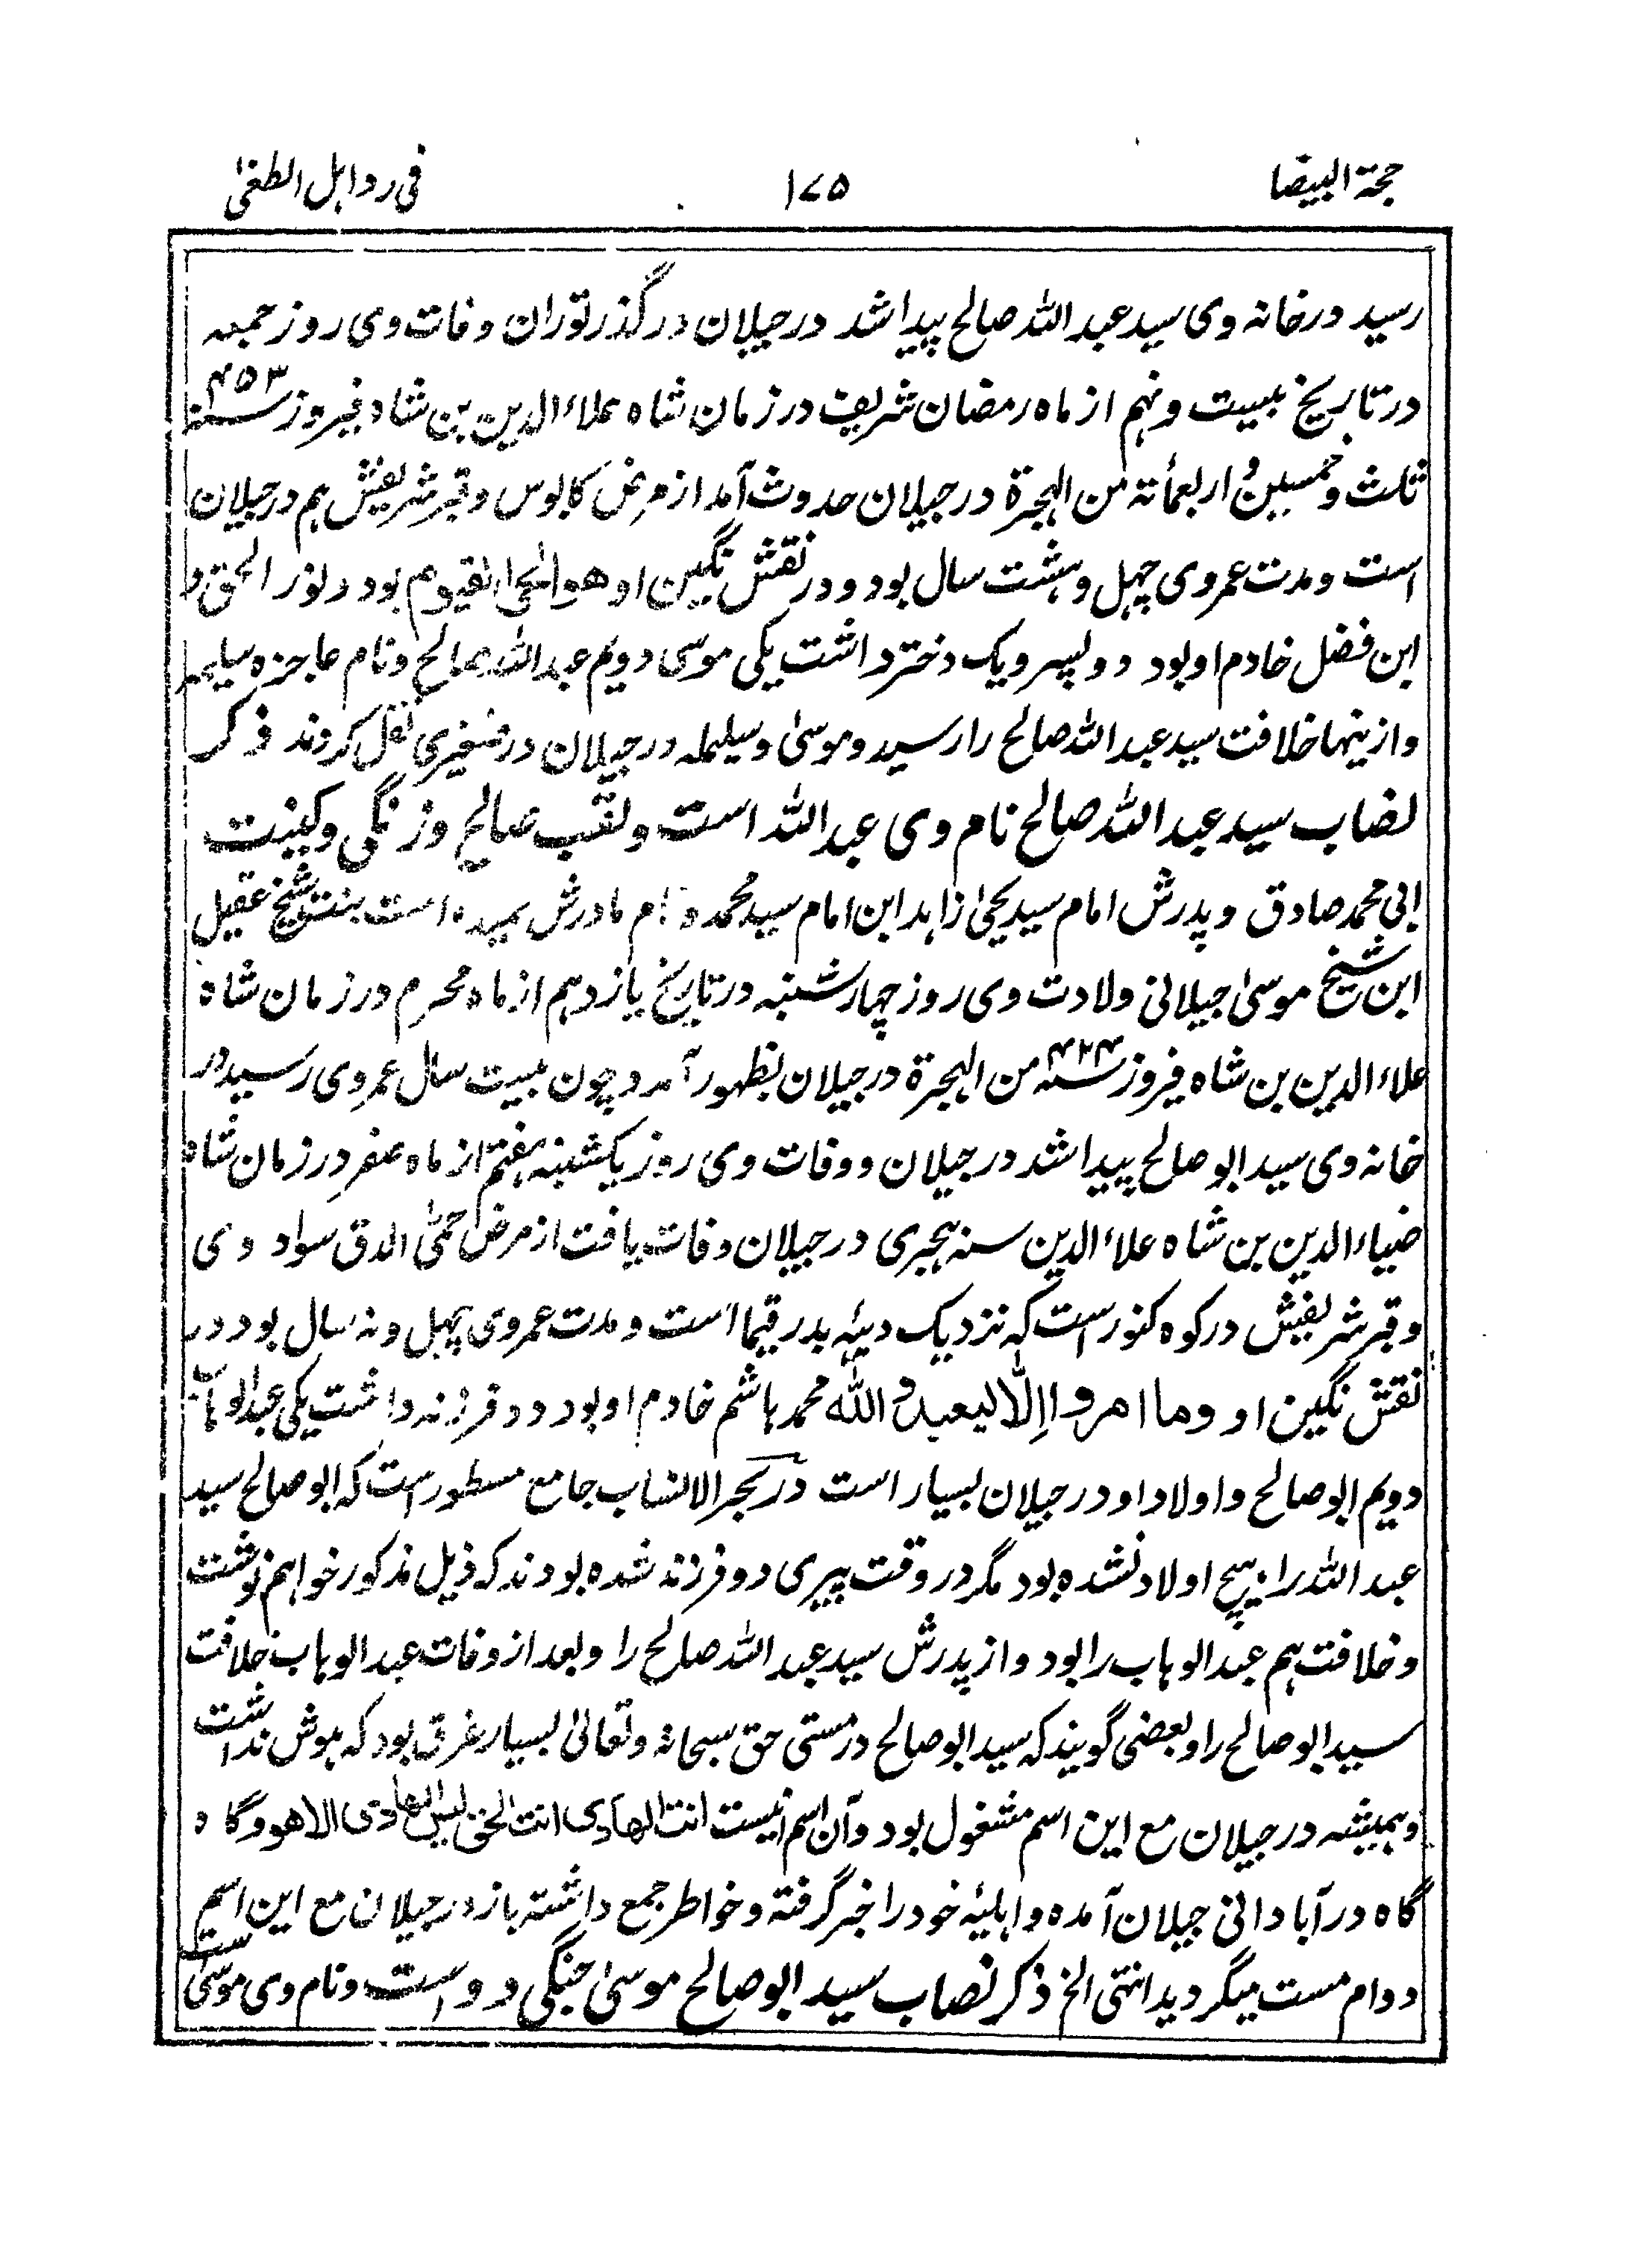 حجة البیضا ۱۷۵ فی رد اہل الطغیٰ
رسید درخانه وی سید عبد اللہ صالح پیدا شد در جیلان در گذر توران وفات وی روز جمعه
در تاریخ بیست و نهم از ماه رمضان شریف در زمان شاه علاء الدین بن شاه فیروز سنہ ۴۵۳
ثلث و خمسین و اربعمأتة من الهجرة در جیلان حدوث آمد از مرض کابوس و قبر شریفش هم در جیلان
است و مدت عمر وی چهل و هشت سال بود و در نقش نگین او هو الحی القیوم بود و نور الحق و
ابن فضل خادم او بود دو پسر و یک دختر داشت یکی موسی دویم عبد اللہ صالح و نام عاجزه سلیمه
و ازینها خلافت سید عبد اللہ صالح را رسید و موسیٰ و سلیمه در جیلان در صغیری نقل کردند ذکر
نصاب سید عبد اللہ صالح نام وی عبد اللہ است و لقب صالح و زنگی و کنیت
ابی محمد صادق و پدرش امام سید یحیٰ زاہد ابن امام سید محمد و نام مادرش است بنت شیخ عقیل
ابن شیخ موسیٰ جیلانی ولادت وی روز چهار شنبه در تاریخ یازدهم از ماه محرم در زمان شاه
علاء الدین بن شاه فیروز سنہ ۴۲۴ من الهجرة در جیلان بظهور آمد و چون بیست سال عمر وی رسید در
خانه وی سید ابو صالح پیدا شد در جیلان و وفات وی روز یکشنبه هفتم از ماه صفر در زمان شاه
ضیاء الدین بن شاه علاء الدین سنہ هجری در جیلان وفات یافت از مرض حمّی الدق سواد وی
و قبر شریفش در کوه کنور است که نزدیک دیہٴ بدر قیما است و مدت عمر وی چهل و نه سال بود در
نقش نگین او وما امروا اِلّا لیعبدوا اللہ محمد هاشم خادم او بود دو فرزند داشت یکی عبد الوہاب
دویم ابو صالح و اولاد او در جیلان بسیار است در بحر الانساب جامع مسطور است که ابو صالح سید
عبد اللہ را هیچ اولاد نشده بود مگر در وقت پیری دو فرزند شده بودند که ذیل مذکور خواهم نوشت
و خلافت هم عبد الوہاب را بود و از پدرش سید عبد اللہ صالح را و بعد از وفات عبد الوہاب خلافت
سید ابو صالح را و بعضی گویند که سید ابو صالح در مستی حق سبحانه و تعالیٰ بسیار غرق بود که هوش نداشت
و همیشه در جیلان مع این اسم مشغول بود و آن اسم اینست انت الهادی انت الحق لیس الهادی الا هو و گاه
گاه در آبادانی جیلان آمده و اہلیهٴ خود را خبر گرفته و خواطر جمع داشته باز در جیلان مع این اسم
دوام مست میگردید انتهی الخ ذکر نصاب سید ابو صالح موسیٰ جنگی دوست و نام وی موسیٰ است